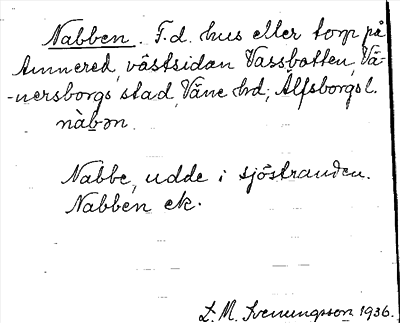 Nabben. F.d. hus eller torp på
Amnered, västsidan Vassbotten, Vä-
-nersborgs stad, Väne hd, Älfsborgs l.
nàb̲ən.
Nabbe, udde i sjöstranden.
Nabben ek.
L. M. Svenungsson 1936.